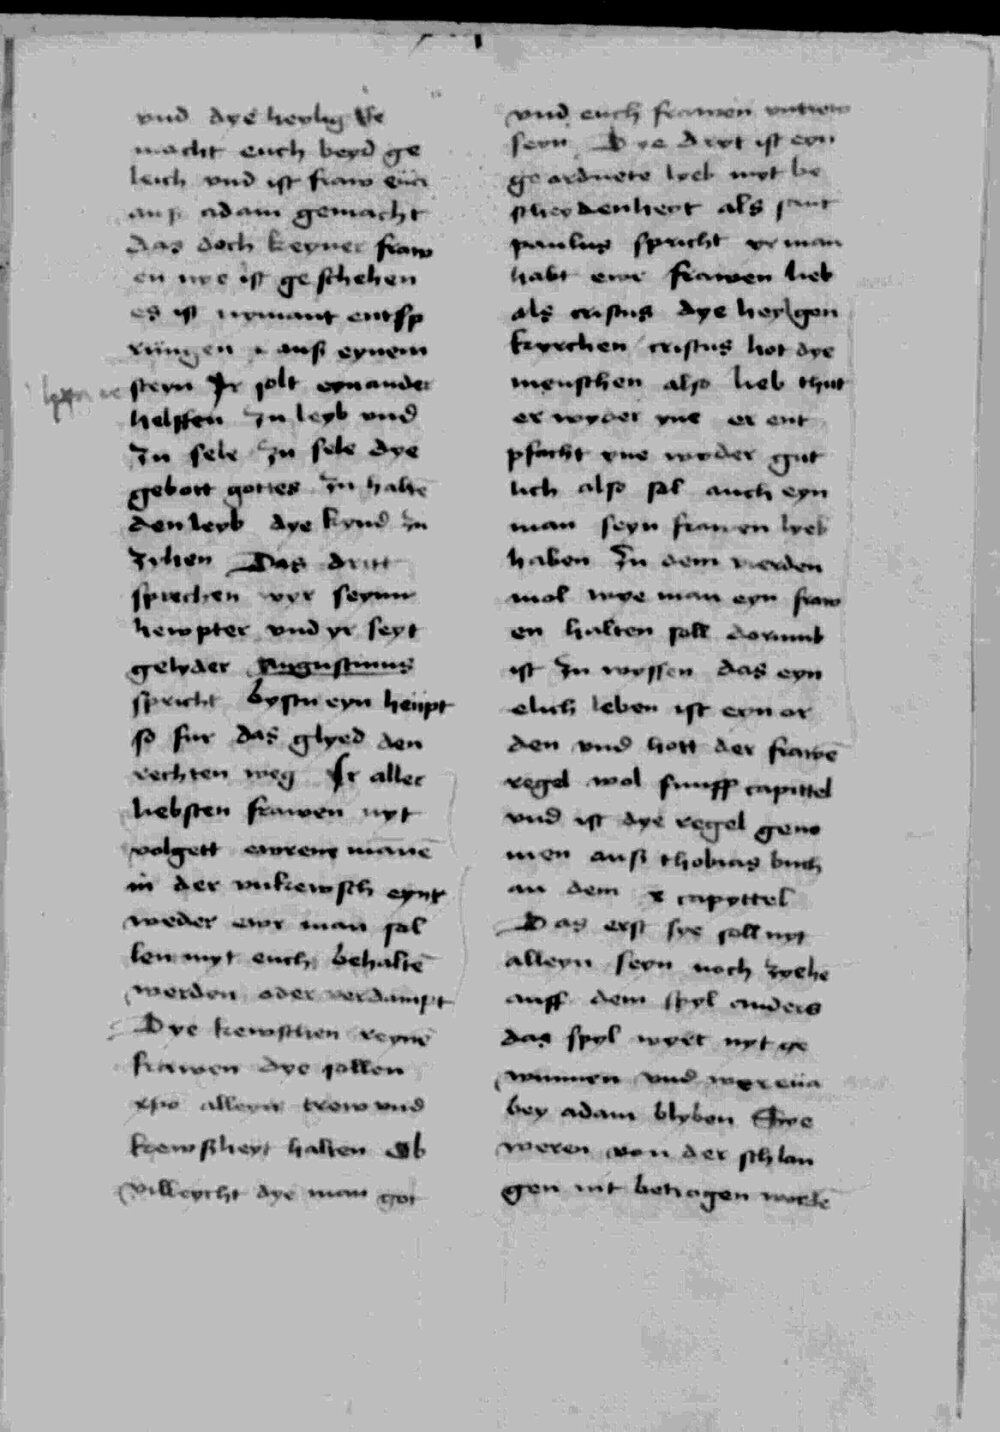 vnd dye heylig Ee
macht euch beyd ge
leich vnd ist fraw eua
auß adam gemacht
das doch keyner fraw
en nye ist geschehen
es ist nymant entsp
rungen auß eynem
steyn Jr solt eynander
helffen zu leyb vnd
zu sele zu sele dye
gebott gottes zu haltē
den leyb dye kynd zu
zihen Das dritt
sprechen wyr seynn
hewpter vnd yr seyt
gelyder Augustinus
spricht bystu eyn heüpt
so fur das glyed den
rechten weg Jr aller
liebsten frawen nyt
volgett ewrem mannē
in der vnkewsch eynt
weder ewr man sol
len myt euch behaltē
werden oder verdampt
Dye kewschen reynē
frawen dye sollen
xpo alleyn trew vnd
kewßheyt halten Ob
villeycht dye man got
vnd euch frawen vntrew
seyn Dye dryt ist eyn
geordnete lyeb myt be
scheydenheyt als sant
paulus spricht yr man
habt ewr frawen lieb
als cristus dye heylgen
kyrchen cristus hot dye
menschen also lieb thut
er wyder yne er ent
pfacht yne wyder gut
lich also sol auch eyn
man seyn frawen lyeb
haben Zu dem vierden
mol wye man eyn fraw
en halten soll dorumb
ist zu wyssen das eyn
elich leben ist eyn or
den vnd hott der frawē
regel wol funff capittel
vnd ist dye regel geno
men auß thobias buch
an dem x capyttel
Das erst sye soll nyt
alleyn seyn noch zyehē
auff dem spyl anders
das spyl wyrt nyt ge
wunnen vnd wer eua
bey adam blyben Sye
weren von der schlan
gen nit betrogen wordē